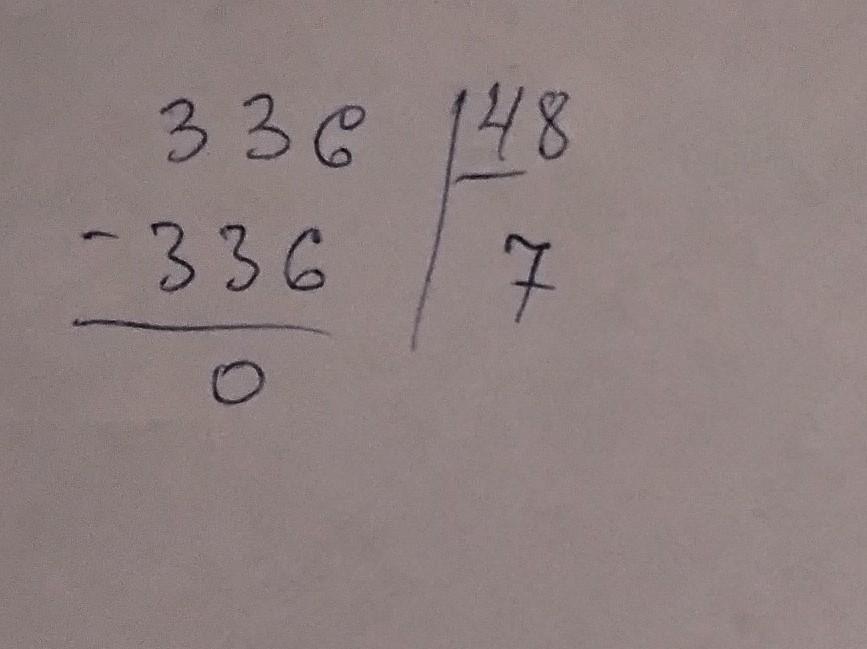 336 48
-336 7
0